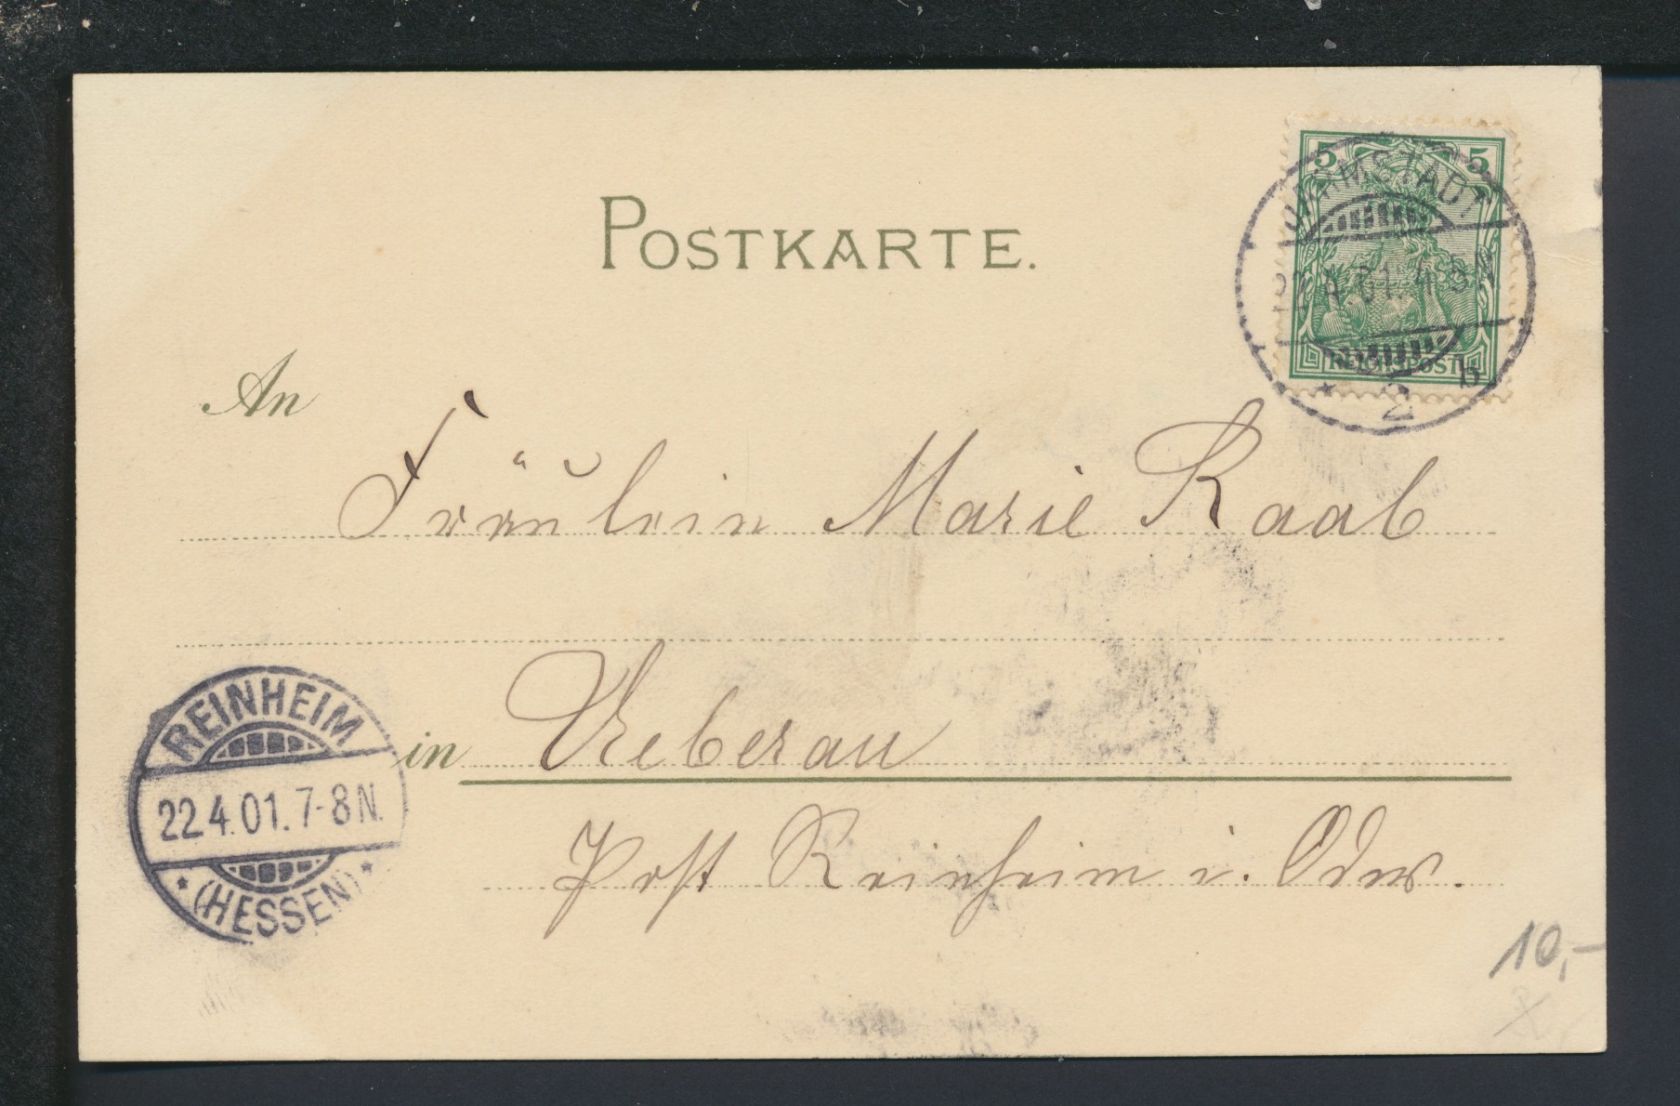 POSTKARTE.
5 5
DARMSTADT
22.4.01. 4-5N
REICHSPOST
* 2 b
An
Fräulein Marie Raab
in Ueberau
Post Reinheim i. Odw.
REINHEIM
22.4.01.7-8N.
* (HESSEN) *
10,-